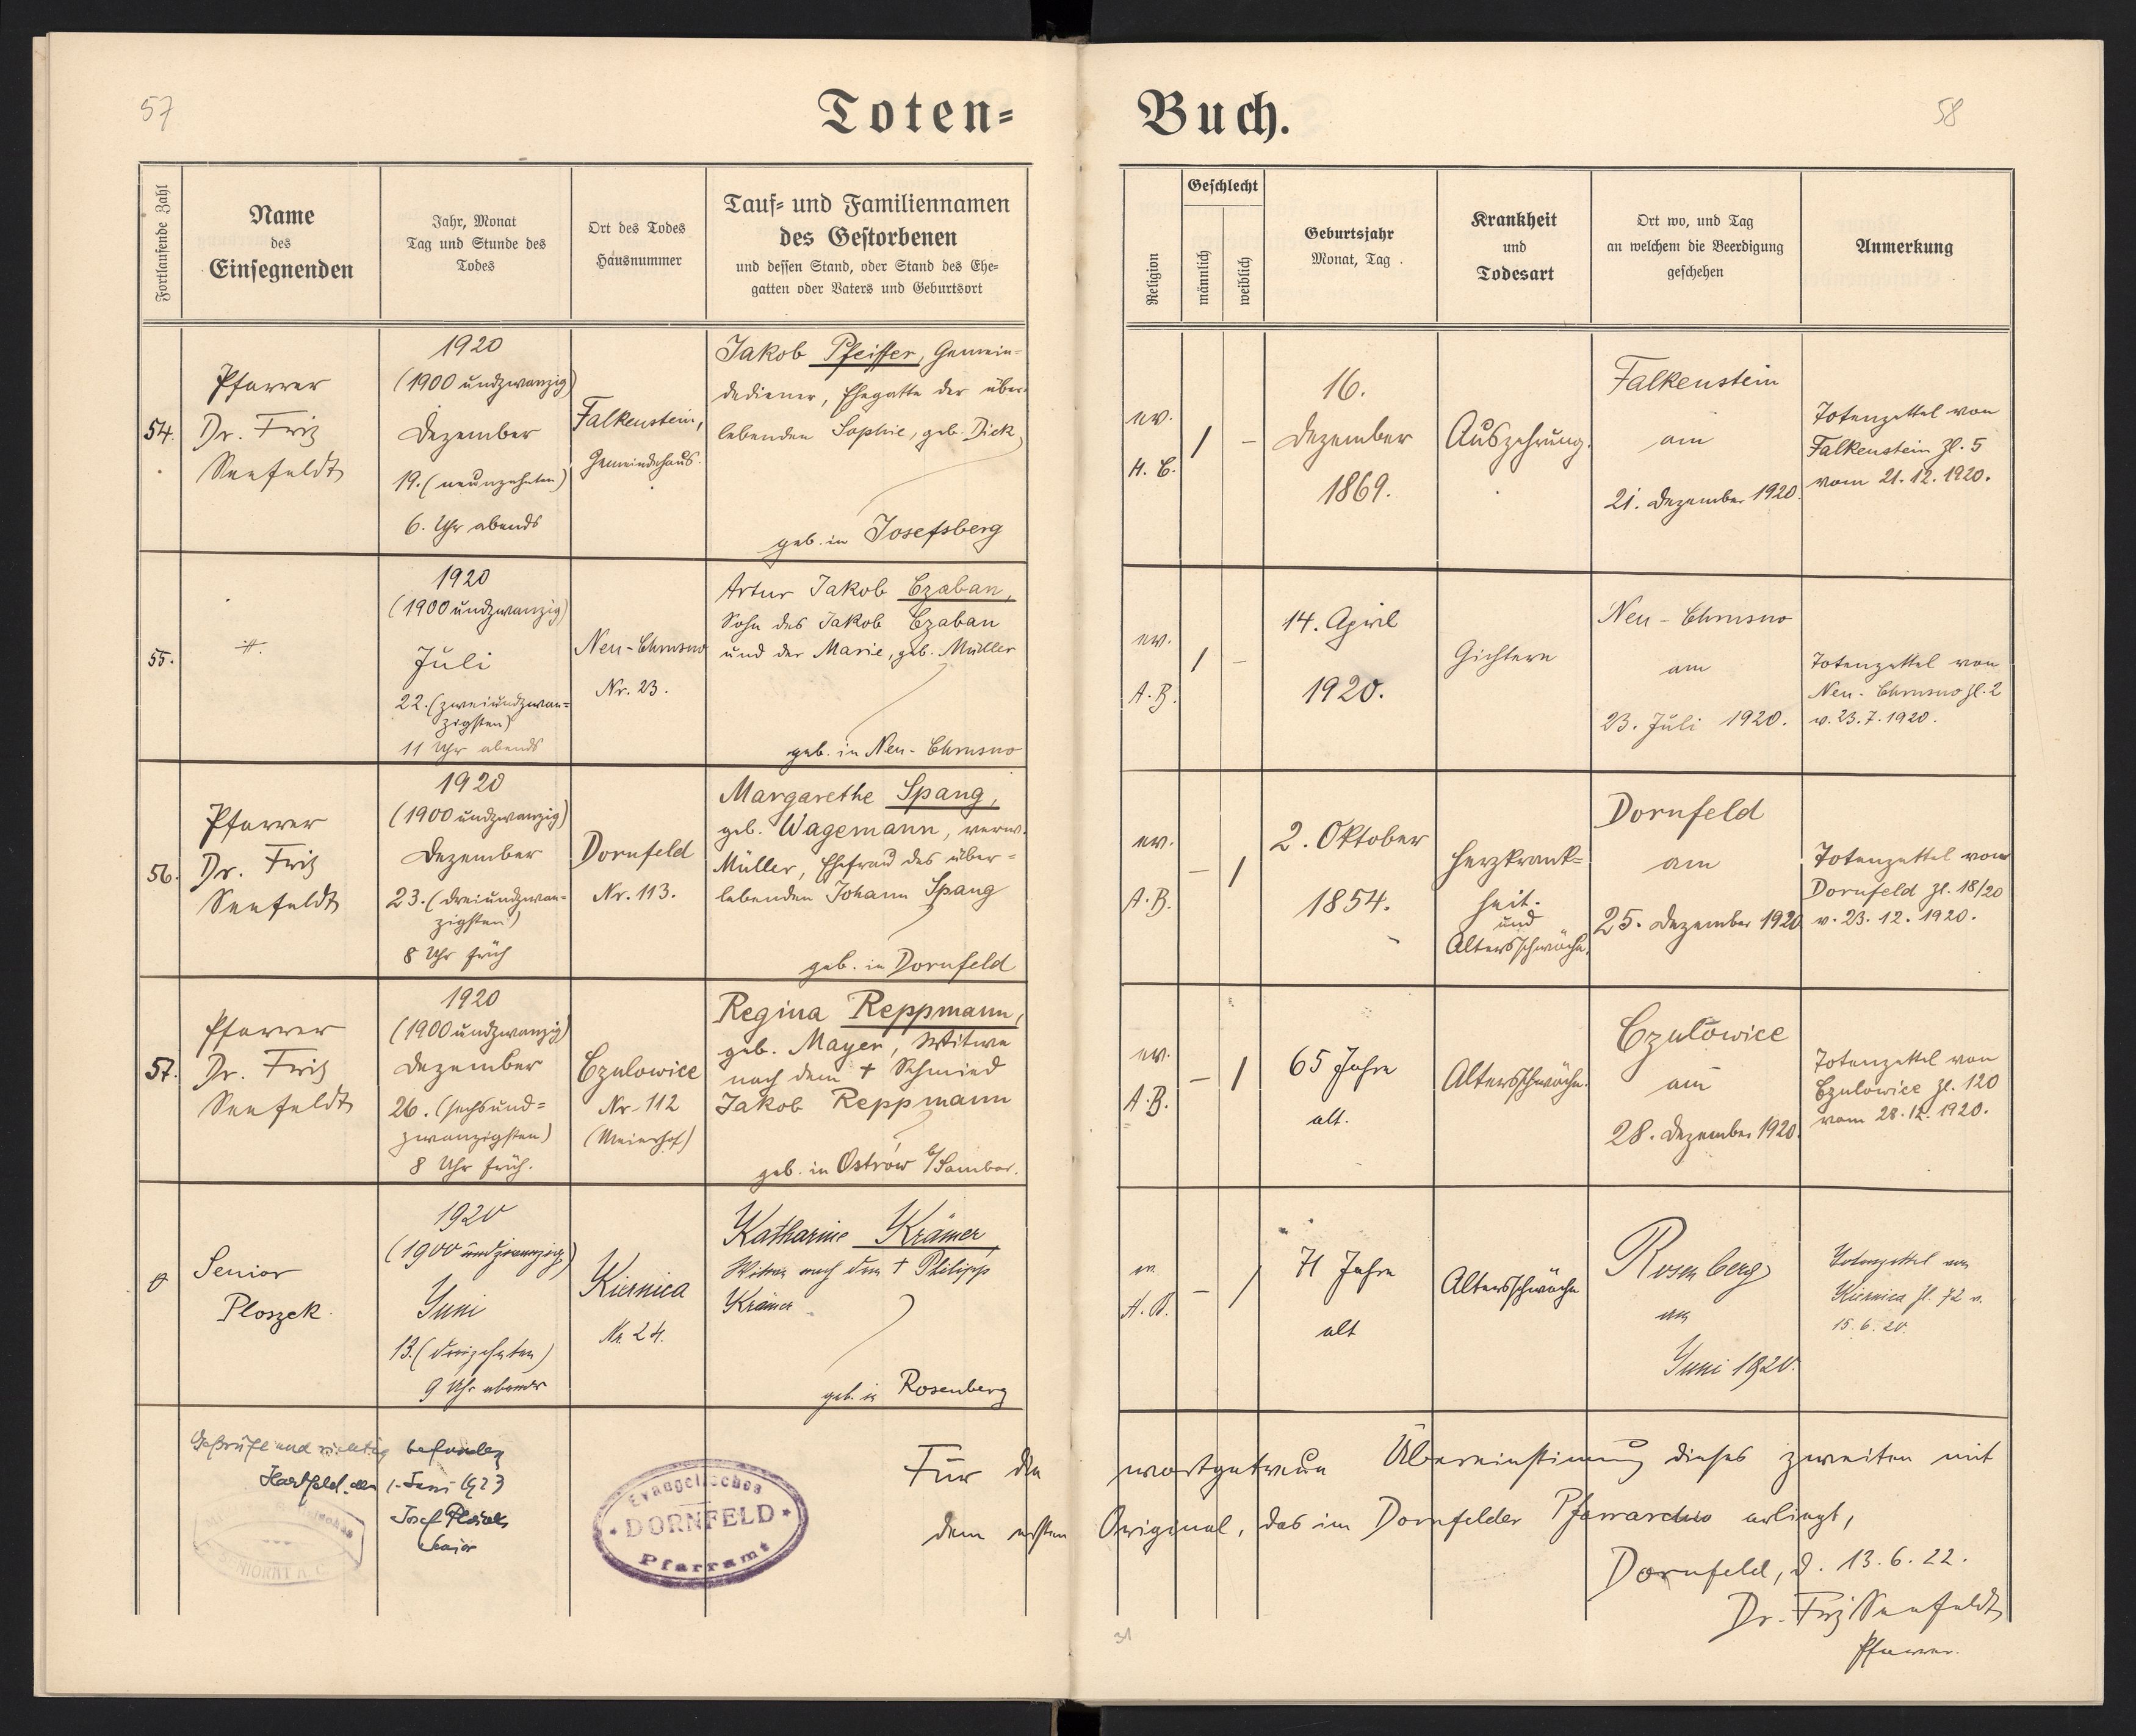 57
58
Toten= Buch.
Fortlaufende Zahl
Name
des
Einsegnenden
Jahr, Monat
Tag und Stunde des
Todes
Ort des Todes
Hausnummer
Tauf= und Familiennamen
des Gestorbenen
und dessen Stand, oder Stand des Ehe=
gatten oder Vaters und Geburtsort
Religion
Geschlecht
männlich
weiblich
Geburtsjahr
Monat, Tag.
Krankheit
und
Todesart
Ort wo, und Tag
an welchem die Beerdigung
geschehen
Anmerkung
54.
Pfarrer
Dr. Fritz
Seefeldt
1920
(1900 undzwanzig)
Dezember
19. (neunzehnten)
6. Uhr abends
Falkenstein,
Gemeindehaus.
Jakob Pfeiffer, Gemein=
dediener, Ehegatte der über=
lebenden Sophie, geb. Dick,
geb. in Josefsberg
ev.
H. C.
/ –
16.
Dezember
1869.
Auszehrung.
Falkenstein
am
21. Dezember 1920.
Totenzettel von
Falkenstein Zl. 5
vom 21. 12. 1920.
55.
1920
(1900 undzwanzig)
Juli
22. (zweiundzwan=
zigsten)
11 Uhr abends
Neu-Chrusno
Nr. 23.
Artur Jakob Czaban,
Sohn des Jakob Czaban
und der Marie, geb. Müller
geb. in Neu-Chrusno
ev.
A. B.
/ –
14. April
1920.
Gichtern
Neu-Chrusno
am
23. Juli 1920.
Totenzettel von
Neu-Chrusno Zl. 2
v. 23. 7. 1920.
56.
Pfarrer
Dr. Fritz
Seefeldt
1920
(1900 undzwanzig)
Dezember
23. (dreiundzwan=
zigsten)
8 Uhr früh
Dornfeld
Nr. 113.
Margarethe Spang,
geb. Wagemann, verw.
Müller, Ehefrau des über=
lebenden Johann Spang
geb. in Dornfeld
ev.
A. B.
– /
2. Oktober
1854.
Herzkrank=
heit.
und
Altersschwäche.
Dornfeld
am
25. Dezember 1920
Totenzettel von
Dornfeld Zl. 18/20
v. 23. 12. 1920.
57.
Pfarrer
Dr. Fritz
Seefeldt
1920
(1900 undzwanzig)
Dezember
26. (sechsund=
zwanzigsten)
8 Uhr früh.
Czulowice
Nr. 112
(Meierhof)
Regina Reppmann,
geb. Mayer, Witwe
nach dem + Schmied
Jakob Reppmann
geb. in Ostrów b/Sambor.
ev.
A. B.
– /
65 Jahre
alt.
Altersschwäche.
Czulowice
am
28. Dezember 1920.
Totenzettel von
Czulowice Zl. 120
vom 28. 12. 1920.
Senior
Ploszek
1920
(1900 undzwanzig)
Juni
13. (dreizehnten)
9 Uhr abends
Kiernica
Nr. 24.
Katharine Krämer,
Witwe nach dem + Philipp
Krämer
geb. in Rosenberg
ev.
A. B.
– /
71 Jahre
alt
Altersschwäche
Rosenberg
am
Juni 1920.
Totenzettel von
Kiernica Zl. 72 v.
15. 6. 20.
Geprüft und richtig befunden
Hartfeld, den 1. Juni 1923
Josef Ploszek
Senior
SENIORAT A. C.
Evangelisches
DORNFELD
Pfarramt
Für die wortgetreue Übereinstimmung dieses zweiten mit
dem ersten Original, das im Dornfelder Pfarrarchiv erliegt,
Dornfeld, d. 13. 6. 22.
Dr. Fritz Seefeldt
Pfarrer.
31